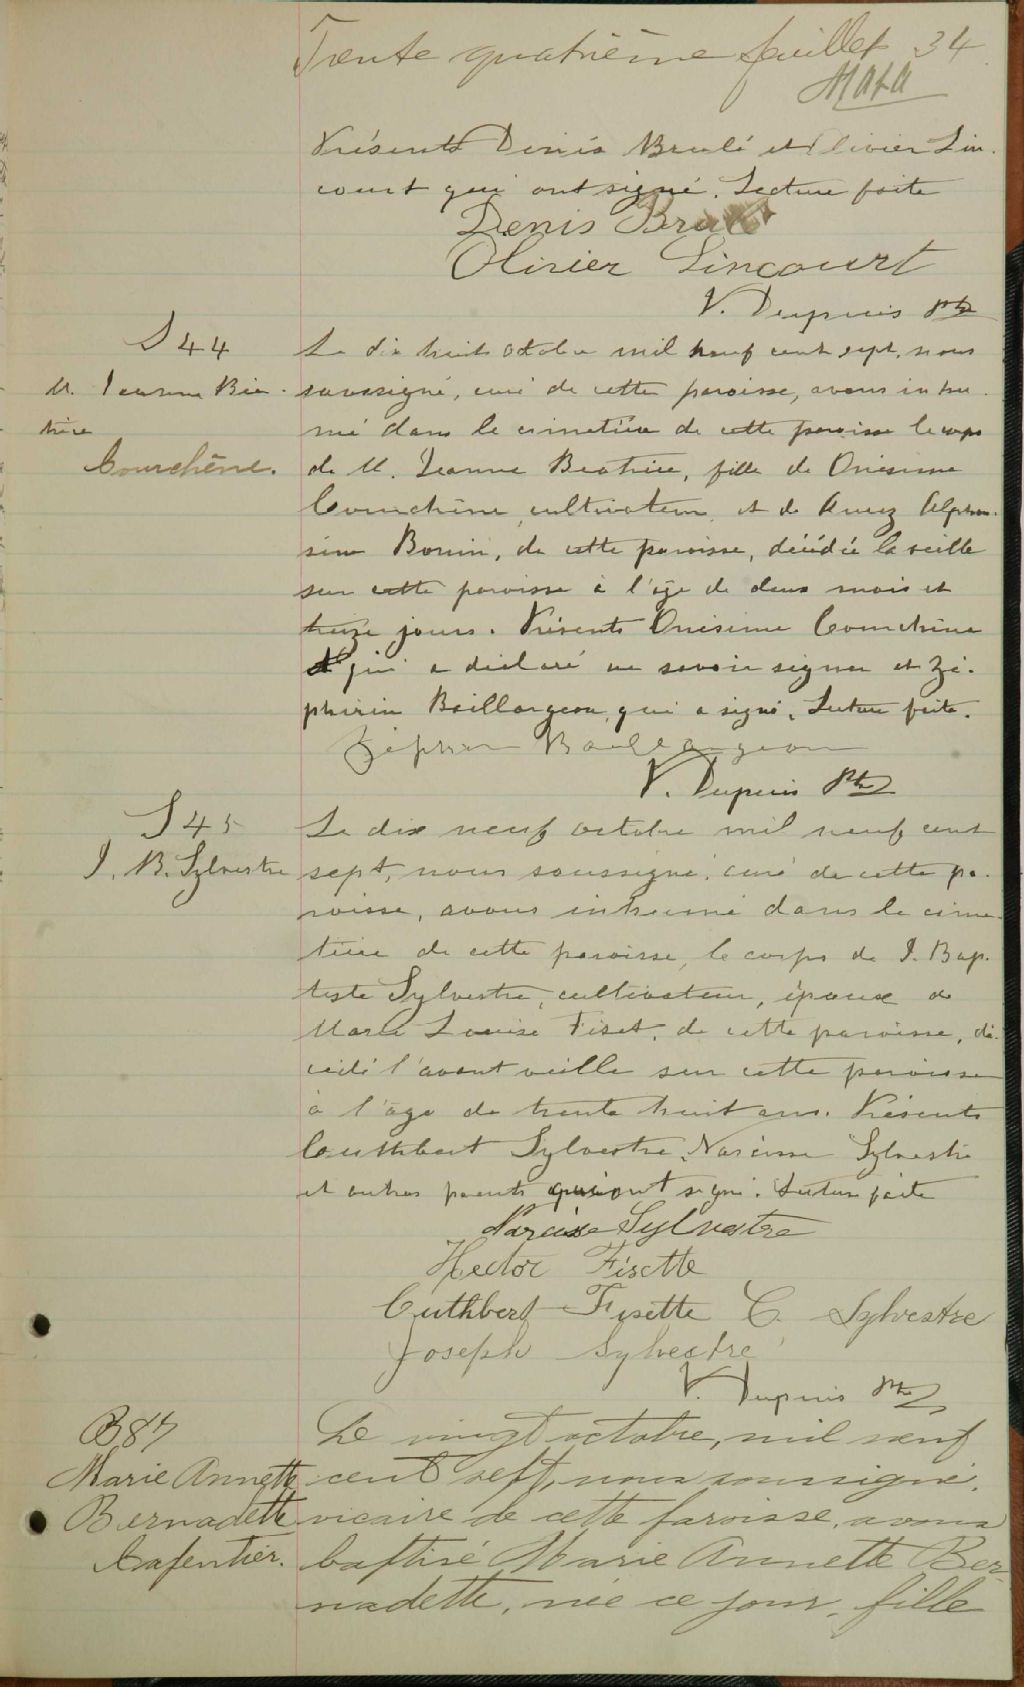 Trente quatrième feuillet 34
Présents Denis Brulé et Olivier Lin-
court qui ont signé. Lecture faite
Denis Brulé
Olivier Lincourt
V. Dupuis Ptre
S 44
M. Jeanne Béa-
trice
Courchêne.
Le dix huit octobre mil neuf cent sept, nous
soussigné, curé de cette paroisse, avons inhu-
mé dans le cimetière de cette paroisse le corps
de M. Jeanne Béatrice, fille de Onésime
Courchêne, cultivateur, et de Alphon-
sine Bonin, de cette paroisse, décédée la veille
sur cette paroisse à l'âge de deux mois et
treize jours. Présents Onésime Courchêne
qui a déclaré ne savoir signer et Zé-
phirin Baillargeon, qui a signé. Lecture faite.
Zéphirin Baillargeon
V. Dupuis Ptre
S 45
J. B. Sylvestre
Le dix neuf octobre mil neuf cent
sept, nous soussigné, curé de cette pa-
roisse, avons inhumé dans le cime-
tière de cette paroisse, le corps de J. Bap-
tiste Sylvestre, cultivateur, époux de
Marie Louise Fiset, de cette paroisse, dé-
cédé l'avant veille sur cette paroisse
à l'âge de trente huit ans. Présents
Cuthbert Sylvestre, Narcisse Sylvestre
et autres parents qui ont signé. Lecture faite
Narcisse Sylvestre
Hector Fisette
Cuthbert Fisette C. Sylvestre
Joseph Sylvestre
V. Dupuis Ptre
B 87
Marie Annette
Bernadette
Carpentier.
Le vingt octobre, mil neuf
cent sept, nous soussigné,
vicaire de cette paroisse, avons
baptisé Marie Annette Ber-
nadette, née ce jour, fille